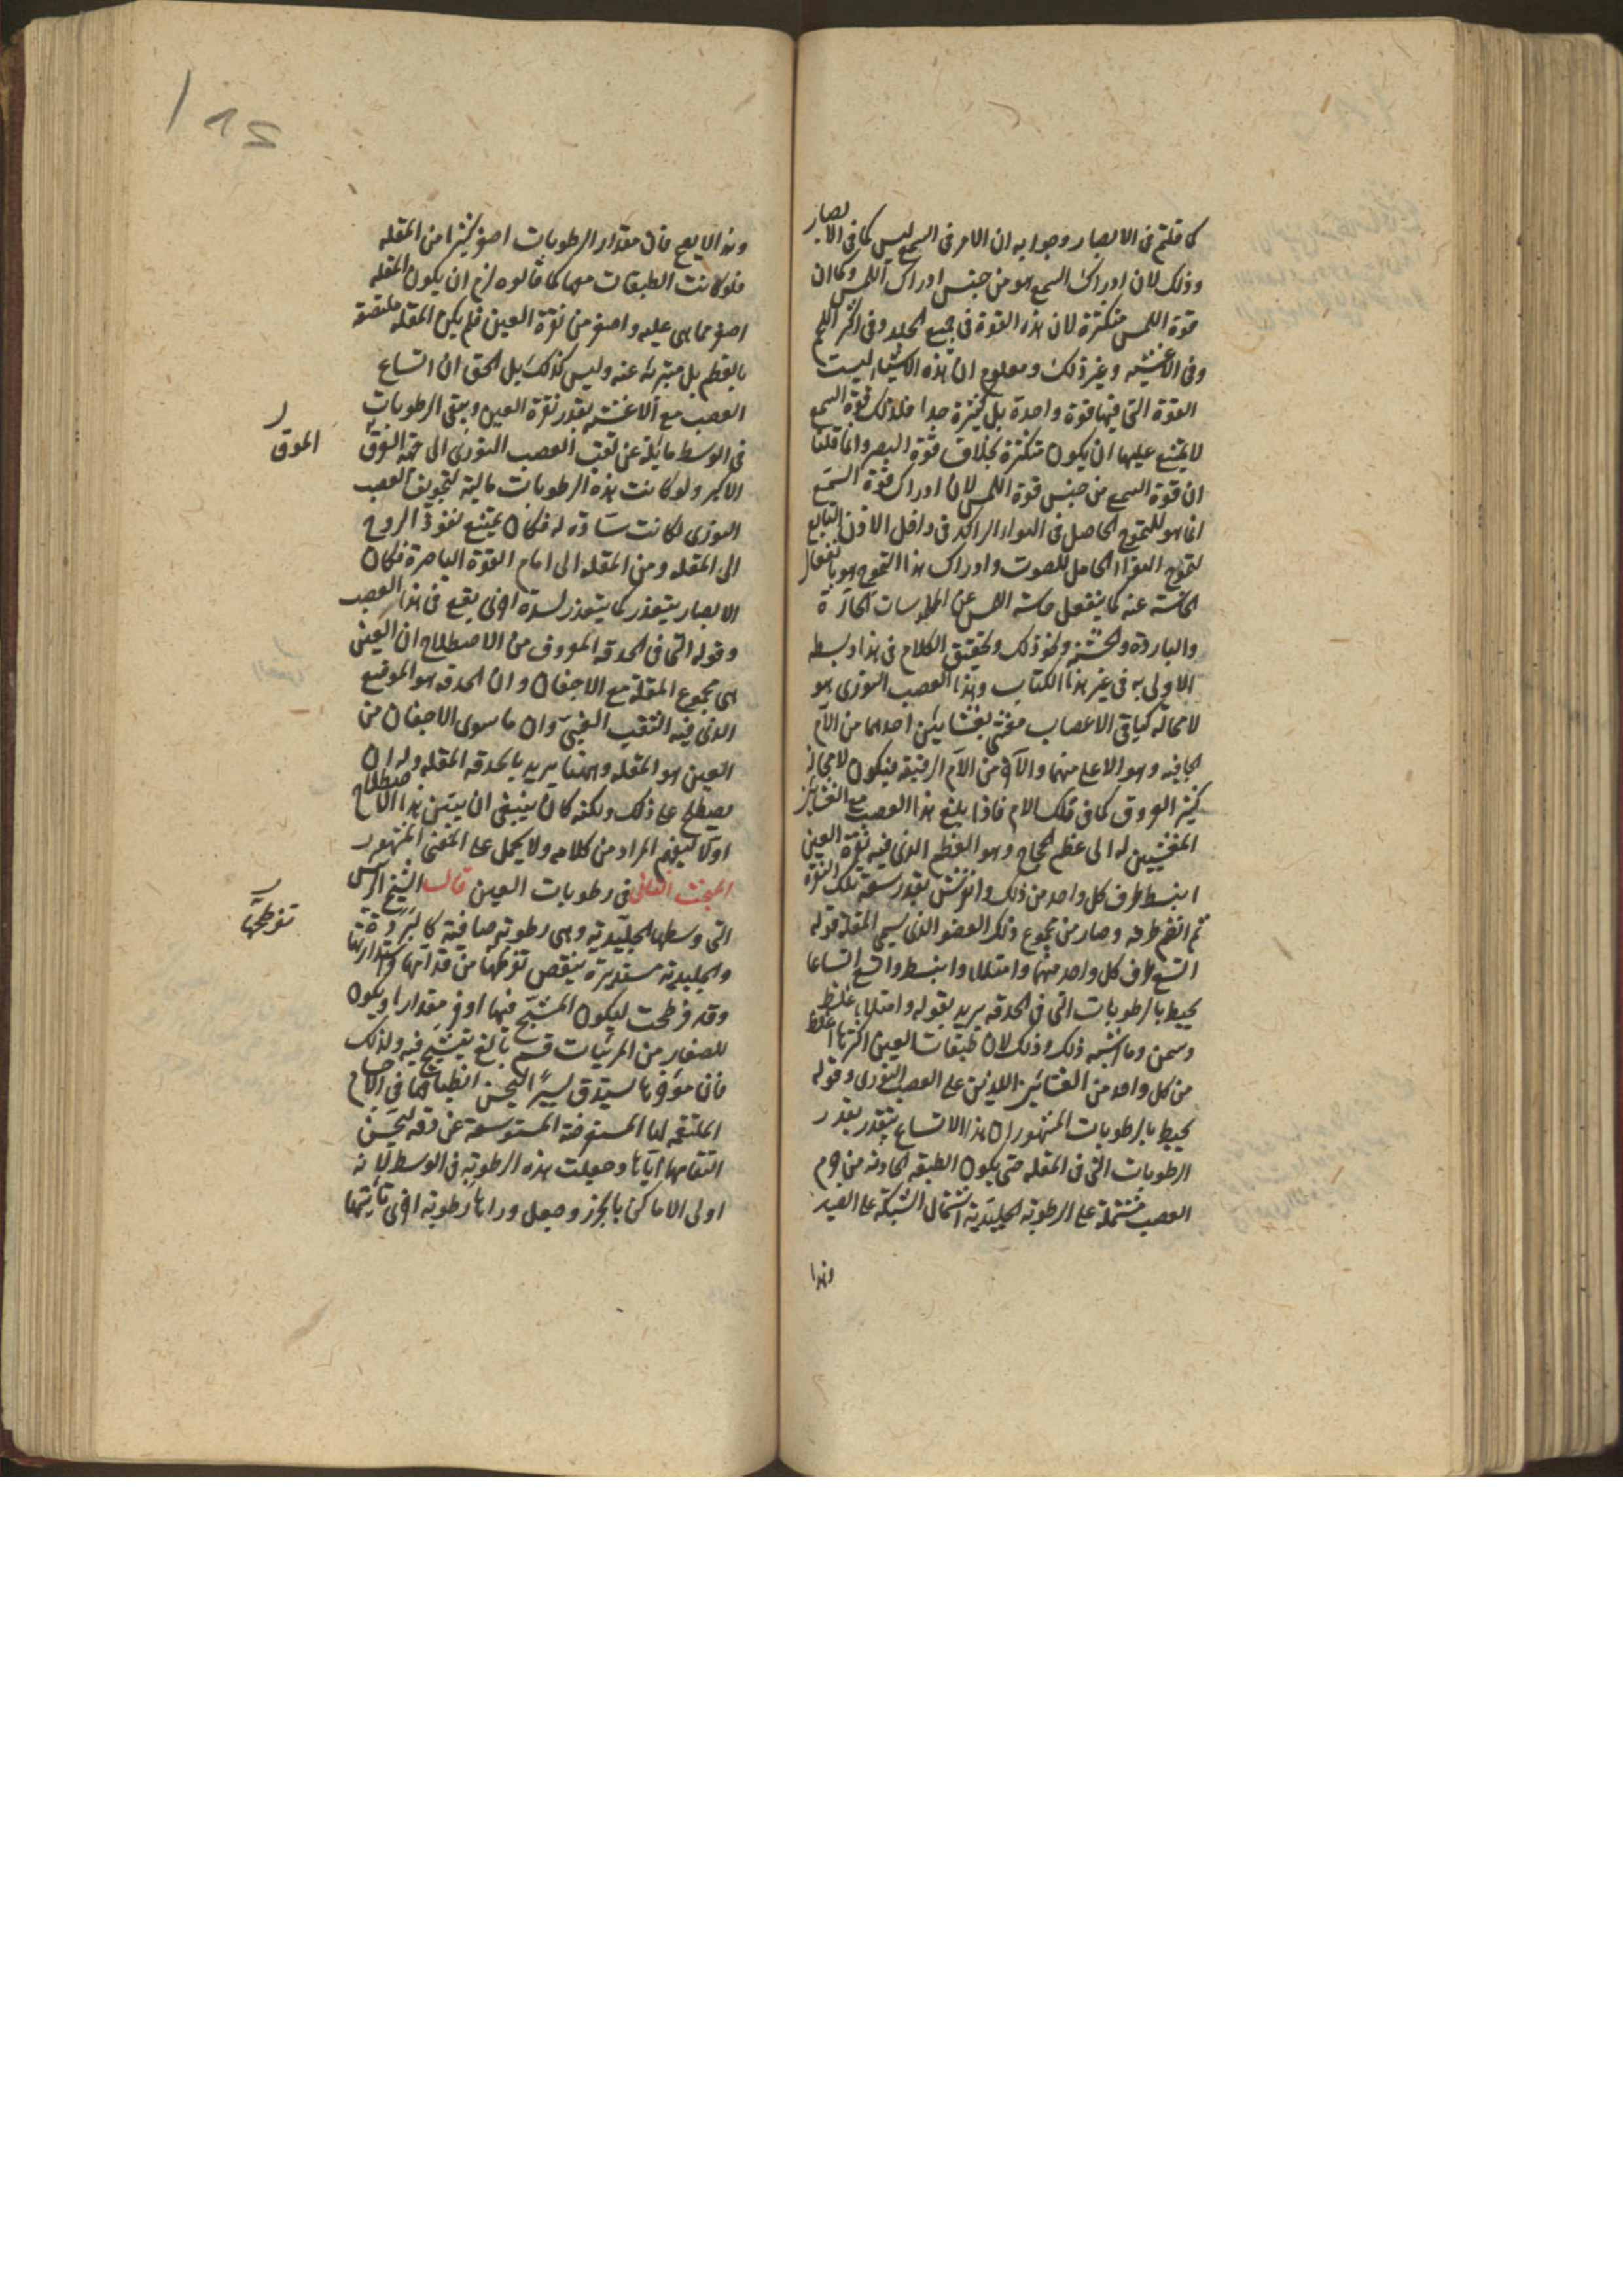 كما قلتم فى الابصار وجوابه ان الامر فى السمع ليس كما فى الابصار
وذلك لان ادراك السمع هو من جنس ادراك اللمس وكما ان
قوة اللمس متكثرة لان هذه القوة فى جميع الجلد وفى اكثر اللحم
وفى الاغشيه وغير ذلك ومعلوم ان هذه الاشياء ليست
القوة التى فيها قوة واحدة بل كثيرة جدا فلذلك قوة السمع
لا يمتنع عليها ان يكون متكثرة بخلاف قوة البصر وانما قلنا
ان قوة السمع من جنس قوة اللمس لان ادراك قوة السمع
انما هو للتموج الحاصل فى الهواء الراكد فى داخل الاذن التابع
لتموج الهواء الحامل للصوت وادراك هذا التموج هو بانفعال
الحاسة عنه كما ينفعل حاسة اللمس عن الملموسات الحارة
والباردة والخشنة ونحو ذلك وتحقيق الكلام فى هذا وبسطه
الاولى به فى غير هذا الكتاب وهذا العصب النورى هو
لا محاله كباقى الاعصاب مغشى بغشايين احدهما من الام
الجافيه وهو الاعلى منهما والآخر من الام الرقيقه فيكون لا محاله
كثير العروق كما فى تلك الام فاذا بلغ هذا العصب مع الغشائين
المغشيين له الى عظم الحجاج وهو العظم الذى فيه نقرة العين
انبسط طرف كل واحد من ذلك وانفرش بقدر سعة تلك النقرة
ثم انضم طرفه وصار من مجموع ذلك العضو الذى يسمى المقلة قوله
اتسع طرف كل واحد منهما وامتلاء وانبسط واتسع اتساعا
يحيط بالرطوبات التى فى الحدقه يريد بقوله وامتلاء غلظ
وسمن وما اشبه ذلك وذلك لان طبقات العين اكثرها اغلظ
من كل واحد من الغشائين اللذين على العصب النورى وقوله
يحيط بالرطوبات المشهور ان هذا الاتساع يتقدر بقدر
الرطوبات التى فى المقله حتى يكون الطبقه الحادثه من جرم
العصب مشتملة على الرطوبه الجليديه اشتمال الشبكة على الصيد
وهذا
وهذا لا يصح فان مقدار الرطوبات اصغر كثيرا من المقله
فلو كانت الطبقات معها كما قالوه لزم ان يكون المقله
اصغر مما هى عليه واصغر من نقرة العين فلم يكن المقله ملتصقة
بالعظم بل متبرئة عنه وليس كذلك بل الحق ان اتساع
العصب مع الاغشيه بقدر نقرة العين ويبقى الرطوبات
فى الوسط مايلة عن ثقب العصب النورى الى جهة الموق
الموق
الاكبر ولو كانت هذه الرطوبات مالية لتجويف العصب
النورى لكانت سادة له فكان يمتنع نفوذ الروح
الى المقله ومن المقله الى امام القوة الباصرة فكان
الابصار يتعذر كما يتعذر لسدة اخرى يقع فى هذا العصب
وقوله التى فى الحدقه المعروف من الاصطلاح ان العين
هى مجموع المقلة مع الاجفان وان الحدقه هو الموضع
الذى فيه الثقب العنبى وان ما سوى الاجفان من
العين هو المقله وههنا يريد بالحدقه المقله وله ان
يصطلح على ذلك ولكنه كان ينبغى ان يبين هذا الاصطلاح
اولا ليفهم المراد من كلامه ولا يحمل على المعنى المشهور
المبحث الثانى فى رطوبات العين قال الشيخ الرئيس
التى وسطها الجليديه وهى رطوبه صافية كالبرد
والجليديه مستديرة ينقص تفرطحها من قدامها استدارتها
تفرطحها
وقد فرطحت ليكون المتشبح فيها اوفر مقدارا ويكون
للصغار من المرئيات قسم بالغ يتشبح فيه ولذلك
فان مؤخرها يستدق يسيرا ليحسن انطباعها فى الاجسام
الملتقمه لها المستعرضة المستوسعة عن دقه ليحسن
التقامها اياها وجعلت هذه الرطوبه فى الوسط لانه
اولى الاماكن بالحرز وجعل وراها رطوبة اخرى تاتيها